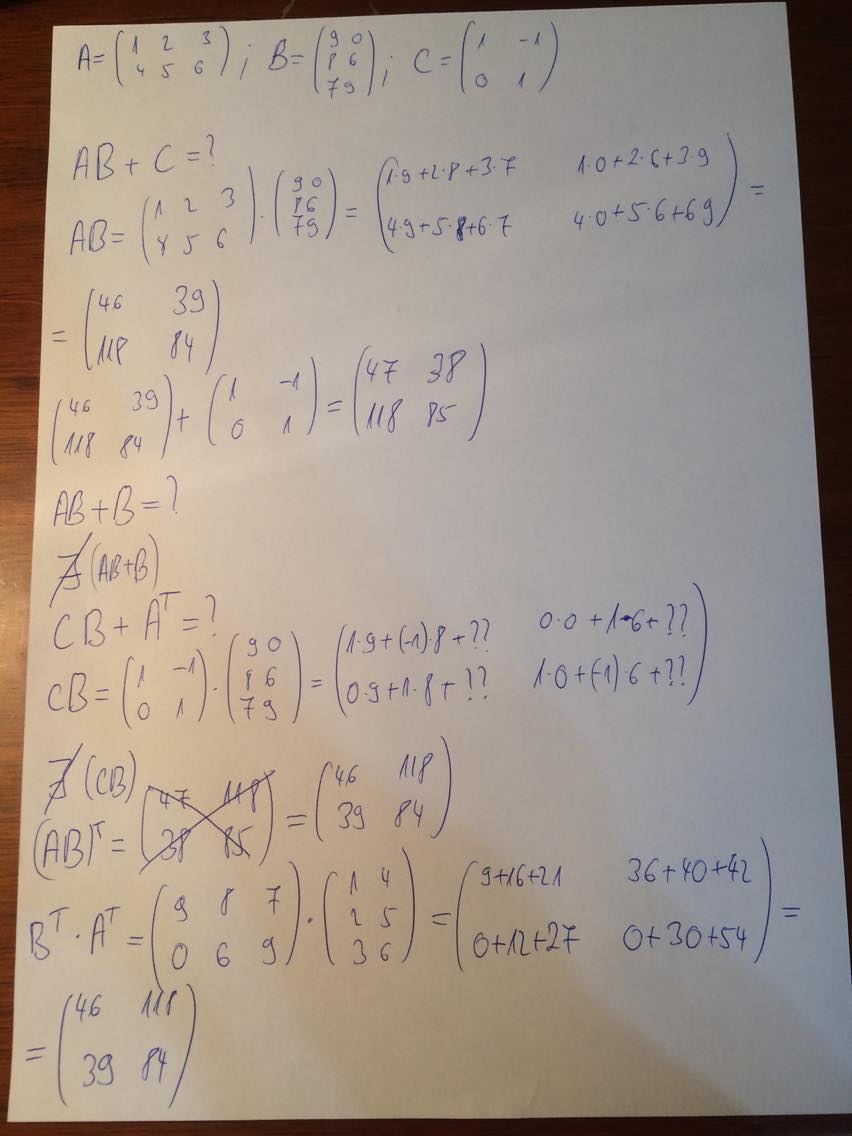 A = (1 2 3 / 4 5 6) ; B = (9 0 / 8 6 / 7 9) ; C = (1 -1 / 0 1)
AB + C = ?
AB = (1 2 3 / 4 5 6) · (9 0 / 8 6 / 7 9) = (1·9+2·8+3·7 1·0+2·6+3·9 / 4·9+5·8+6·7 4·0+5·6+6 9) =
= (46 39 / 118 84)
(46 39 / 118 84) + (1 -1 / 0 1) = (47 38 / 118 85)
AB + B = ?
∄ (AB+B)
CB + Aᵀ = ?
CB = (1 -1 / 0 1) · (9 0 / 8 6 / 7 9) = (1·9+(-1)·8+?? 0·0+1·6+?? / 0·9+1·8+?? 1·0+(-1)·6+??)
∄ (CB)
(AB)ᵀ = (47 118 / 38 85) = (46 118 / 39 84)
Bᵀ · Aᵀ = (9 8 7 / 0 6 9) · (1 4 / 2 5 / 3 6) = (9+16+21 36+40+42 / 0+12+27 0+30+54) =
= (46 118 / 39 84)